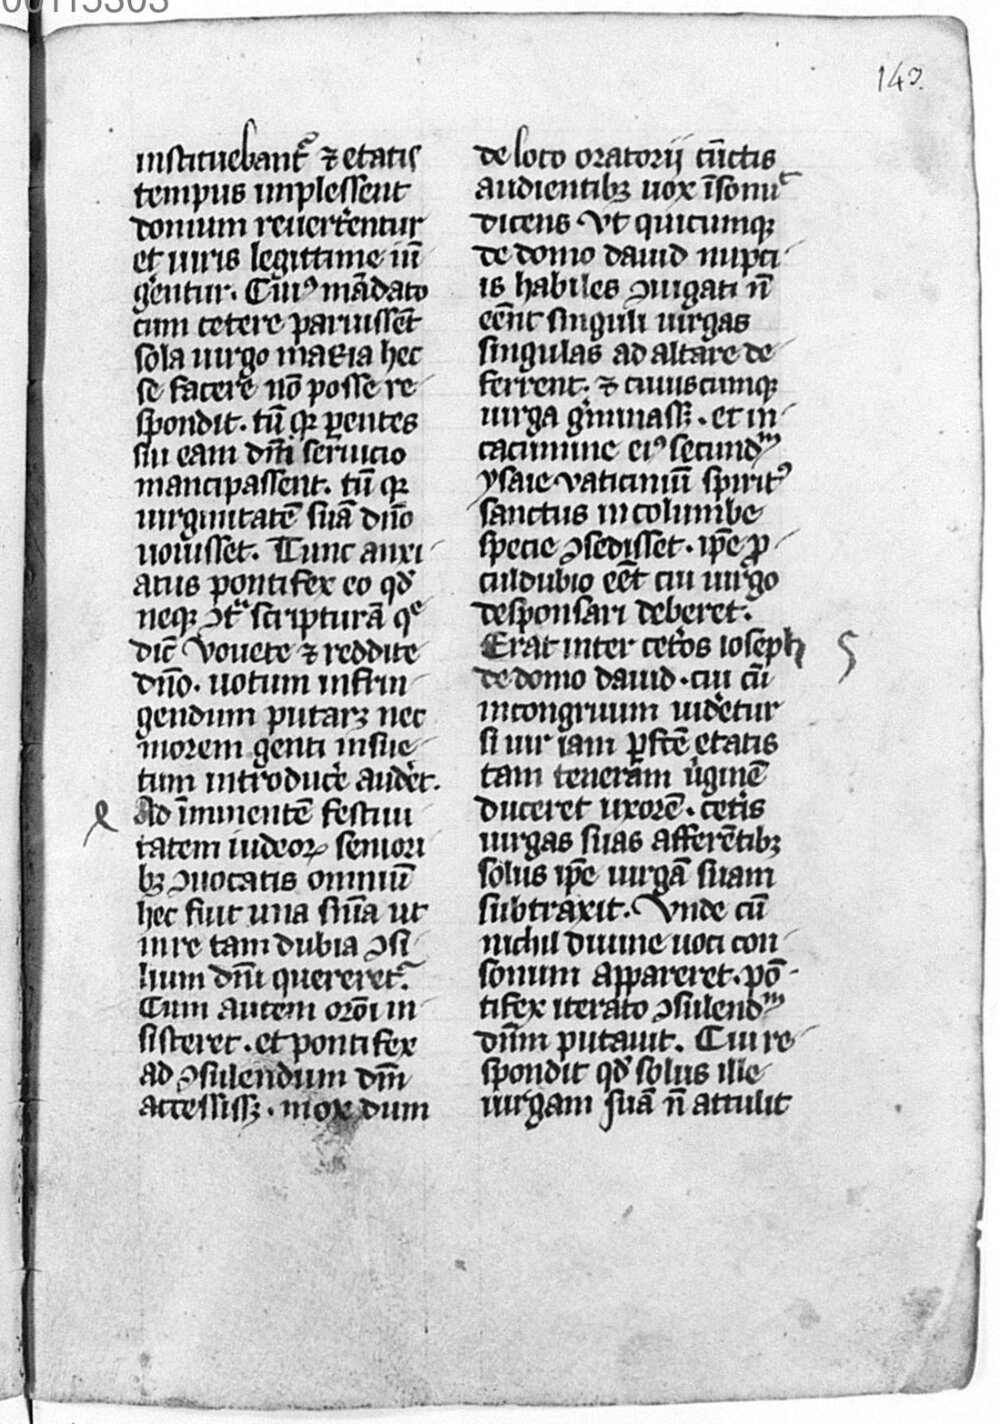 00115303
143.
instituebant᷑ ⁊ etatis
tempus implessent
domum reuert̛entur
et uiris legittime iū
g̛entur. Cuiꝰ mādato
cum cetere paruissēt
sola uirgo maria hec
se facere nō posse re
spondit. tū qꝛ ꝑentes
sui eam dn̄i seruicio
mancipassent. tū qꝛ
uirginitatē suā dn̄o
nouisset. Tunc anxi
atus pontifex eo qd̛
neqꝫ ↄtᷓ scripturā qͤ
dic̄ Vouete ⁊ reddite
dn̄o. uotum infrin
gendum putarꝫ nec
morem genti insue
tum introduce̛ aude̛t.
Ad īminentē festiui
tatem iudeoꝝ seniori
bꝫ ↄuocatis omniū
hec fuit una sn̄ia ut
in re tam dubia ↄsi
lium dn̄i quereret᷑.
Cum autem or̄oni in
sisteret. et pontifex
ad ↄsulendum dn̄m
accessissꝫ. mox dum
de loco oratorij cūctis
audientibꝫ uox īsonuᵗ
dicens Vt quicumqꝫ
de domo dauid nupci
is habiles ↄiugati n̄
eēnt singuli uirgas
singulas ad altare de
ferrent. ⁊ cuiuscumqꝫ
uirga g̛minassꝫ. et in
cacumine eiꝰ secundᵐ
ysaie vaticiniū spiritꝰ
sanctus in columbe
specie ↄsedisset. ip̄e ꝓ
culdubio eēt cui uirgo
desponsari deberet.
Erat inter cete̛os ioseph
de domo dauid. cui cū
incongruum uide̛tur
si uir iam ꝑfc̄e etatis
tam teneram ưginē
duceret uxorē. cete̛is
uirgas suas afferētibꝫ
solus ip̄e uirgā suam
subtraxit. Vnde cū
nichil diuine uoci con
sonum appareret. pō
tifex iterato ↄsulendᵐ
dn̄m putauit. Cui re
spondit qd̛ solus ille
uirgam suā n̄ attulit